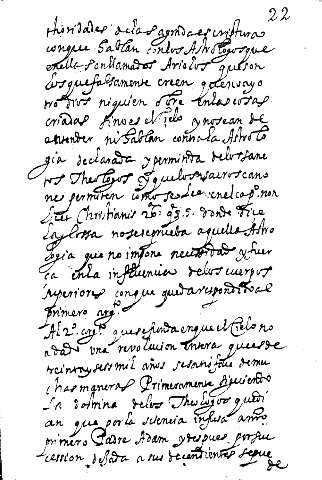 22
thoridades de la sagrada escriptura
con que hablan con los Astrologos que
en ella son llamados Ariolos que son
los que falsamente creen que ay
otro dios ni quien obre en las cosas
criadas sino es el Cielo y no se an de
entender ni hablan contra la Astrolo
gia declarada y permitida de los sanc
tos Theologos y que los sacros cano
nes permiten como se lee en el cap.o non
licet Christianis 26. q. 5. donde dice
la glossa no se reprueba aquella Astro
logia que no impone necessidad y fuer
ça en la influencia de los cuerpos
superiores con que queda respondido al
primero arg.o
Al 2.o arg.o que se funda en que el Cielo no
a dado una revolucion entera que es de
treinta y seis mil años se satisface de mu
chas maneras Primeramente siguiendo
la doctrina de los Theologos que di
an que por la sciencia infusa a nro
primero Padre Adam y despues por suc
cession dejada a sus decendientes se pue
de